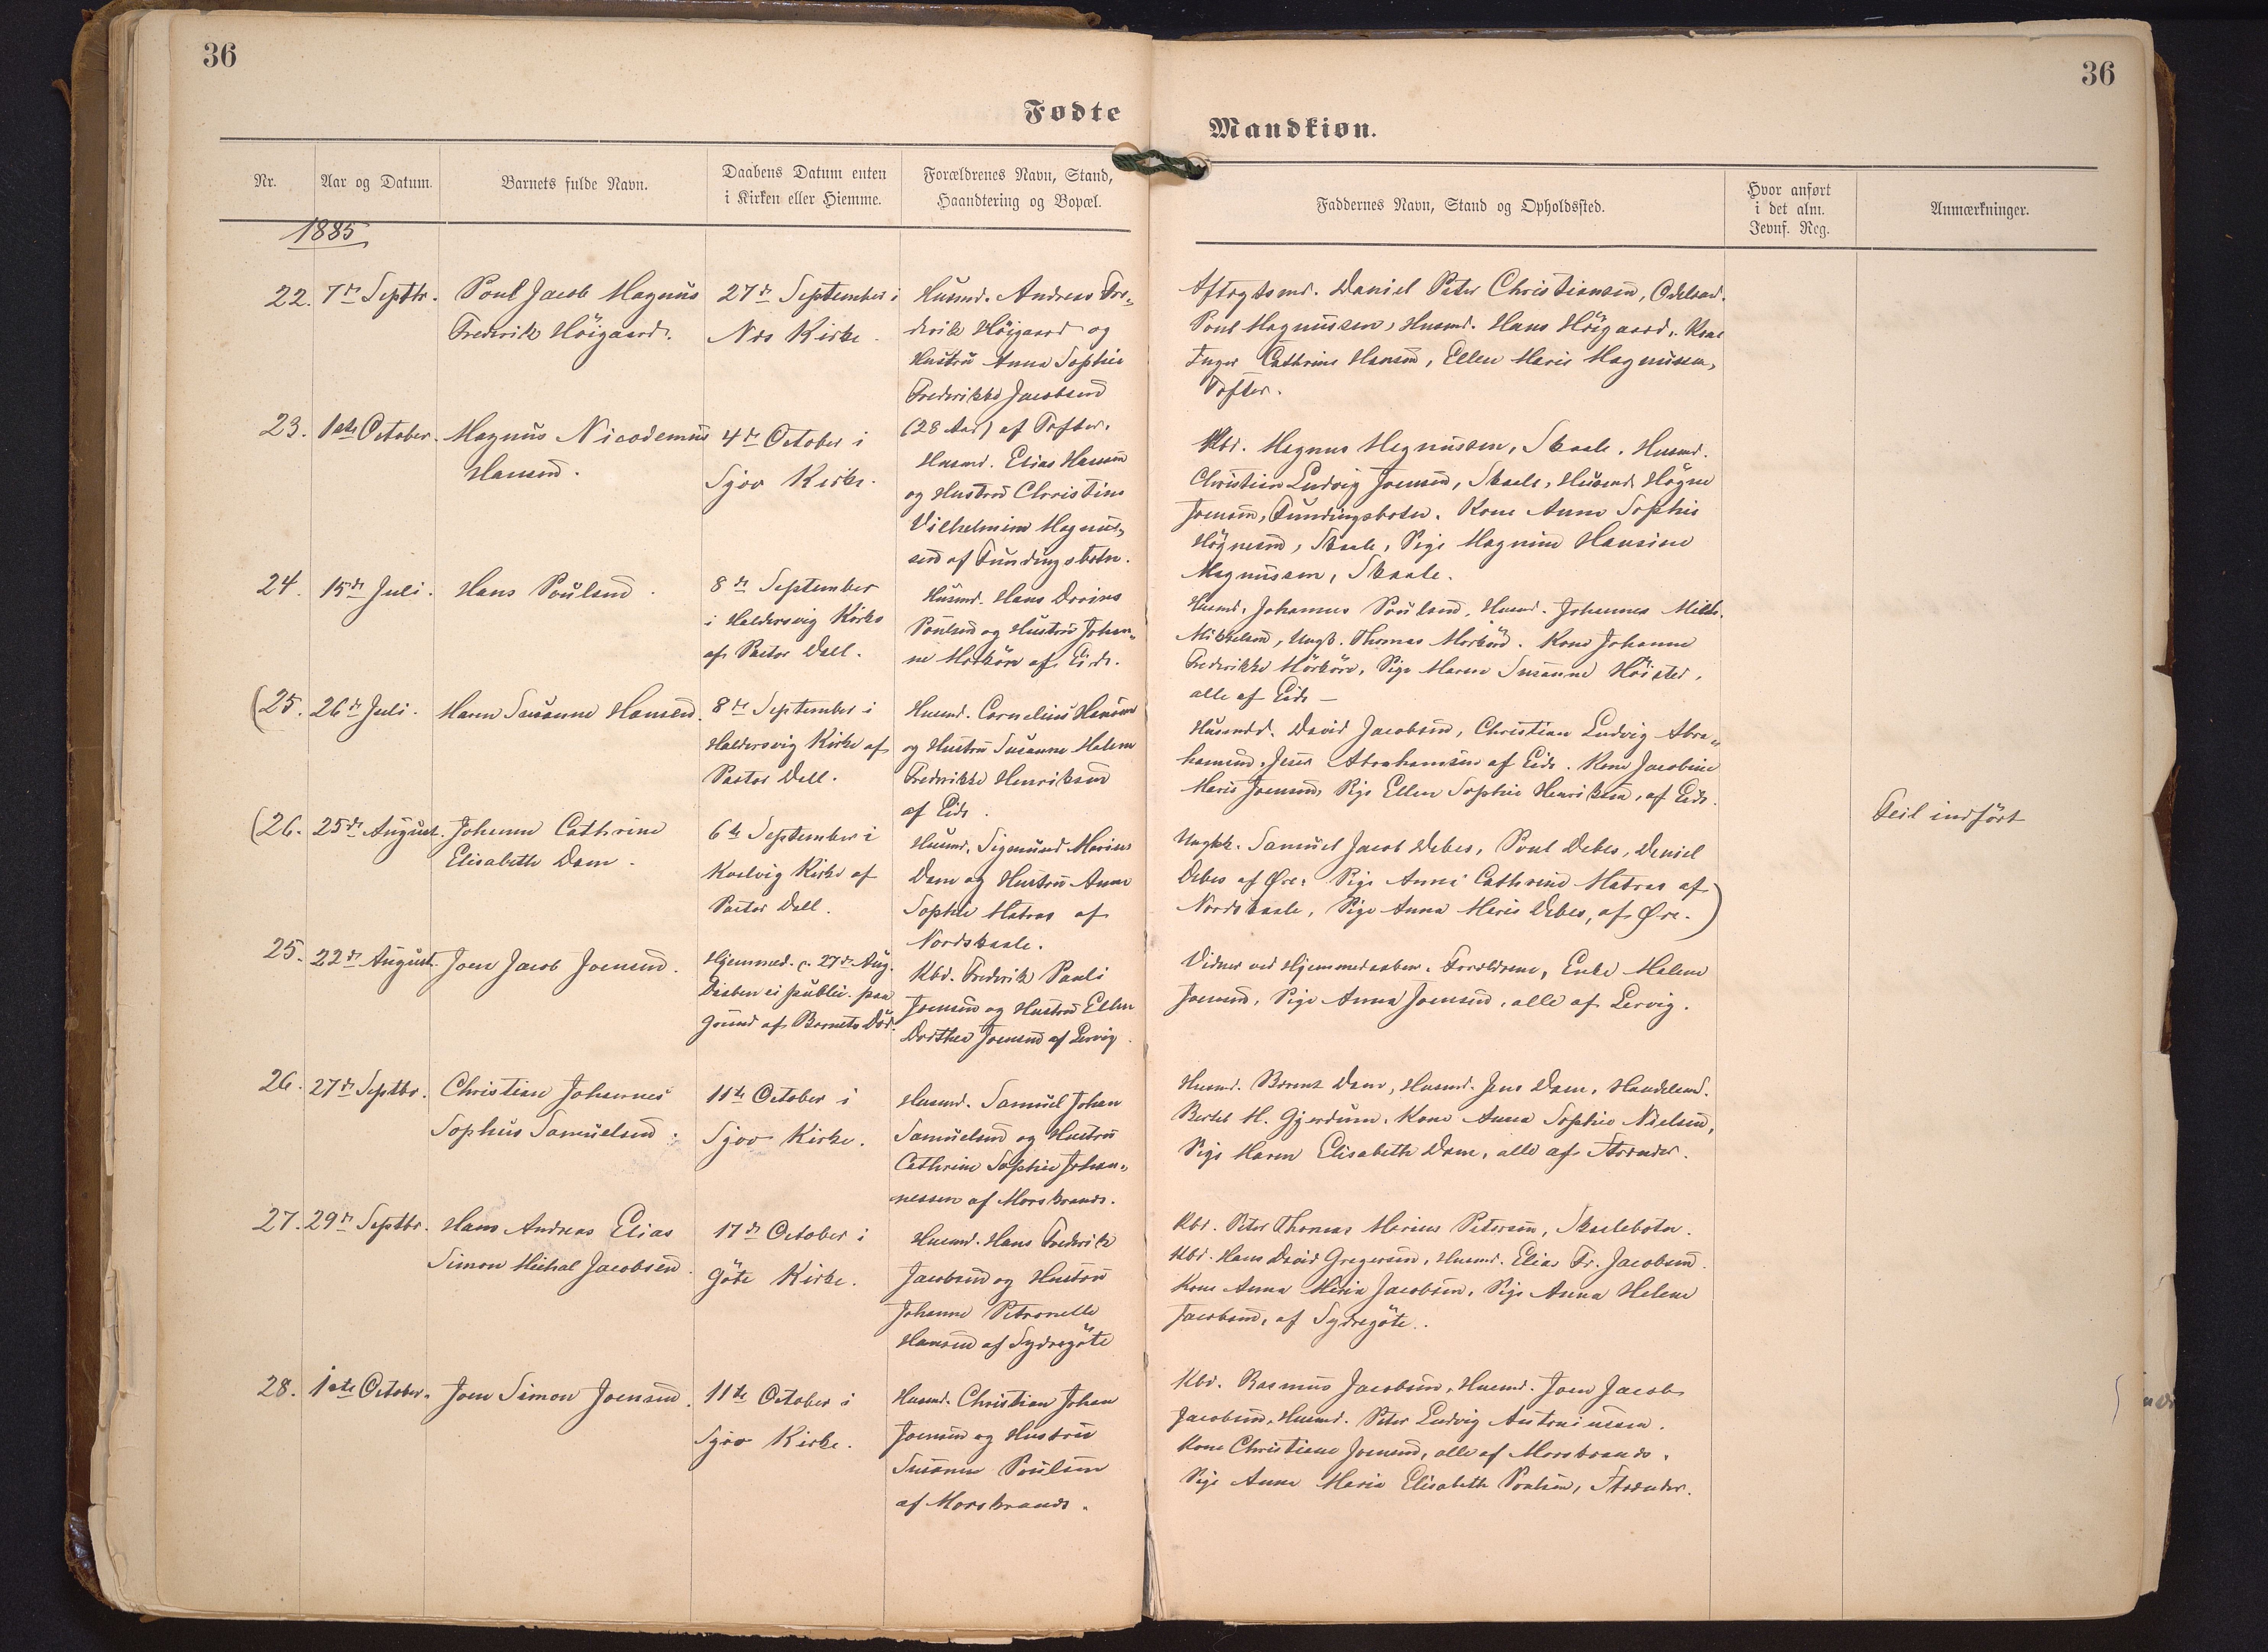 36
36
Fødte
Mandkiøn.
Nr.
Aar og Datum.
Barnets fulde Navn.
Daabens Datum enten
i Kirken eller Hiemme.
Forældrenes Navn, Stand,
Haandtering og Bopæl.
Faddernes Navn, Stand og Opholdssted.
Hvor anført
i det alm.
Jevnf. Reg.
Anmærkninger.
1885
22.
7de Septbr.
Poul Jacob Magnus
Frederik Höigaard.
27de September i
Næs Kirke.
Husmd. Andreas Fre-
derik Höigaard og
Hustrü Anna Sophie
Frederikke Jacobsen
(28 Aar) af Tofter.
Aftægtsmd. Daniel Peter Christiansen, Odelsmd.
Poul Magnussen, Husmd. Hans Höigaard, Kone
Inger Cathrine Hansen, Ellen Marie Magnussen,
Tofter.
23.
1ste October.
Magnüs Nicodemüs
Hansen.
4de October i
Sjov Kirke.
Husmd. Elias Hansen
og Hustrü Christine
Vilhelmine Magnus-
sen af Fundingsbotn.
Kbd. Magnus Magnussen, Skaale. Husmd.
Christian Ludvig Joensen, Skaale, Husmd. Högne
Joensen, Fundingsbotn. Kone Anne Sophie
Högnesen, Skaale, Pige Magnine Hansine
Magnussen, Skaale.
24.
15de Juli.
Hans Poülsen.
8de September
i Haldersvig Kirke
af Pastor Dall.
Husmd. Hans
Poulsen og Hustrü Johan-
ne Mörköre af Eide.
Husmd. Johannes Poulsen, Husmd. Johannes
Mikkelsen, Ungk. Thomas Mörköre. Kone Johanne
Frederikke Mörköre, Pige Maren Susanne
alle af Eide —
(25.
26de Juli.
Maren Susanne Hansen.
8de September i
Haldersvig Kirke af
Pastor Dall.
Husmd. Cornelius Hansen
og Hustrü Susanne Malene
Fredrikke Henriksen
af Eide.
Husmdd. David Jacobsen, Christian Ludvig Abra-
hamsen, Jens Abrahamsen af Eide. Kone Jacobine
Marie Joensen, Pige Ellen Sophie Henriksen, af Eide.
(26.
25de August.
Johanne Cathrine
Elisabeth Dam.
6te September i
Kvalvig Kirke af
Pastor Dall.
Husmd. Sigmund Marius
Dam og Hustrü Anne
Sophie Matras af
Nordskaale.
Ungkk. Samüel Jacob Debes, Poul Debes, Daniel
Debes af Øre. Pige Anne Cathrine Matras af
Nordskaale, Pige Anna Marie Debes, af Øre.)
Feil indfört
25.
22de August.
Joen Jacob Joensen.
Hjemmed. c. 27de Aug.
Daaben ei public. paa
Grund af Barnets Död.
Kbd. Frederik Pauli
Joensen og Hustrü Ellen
Dorthea Joensen af Lervig.
Vidner ved Hjemmedaaben: Forældrene, Enke Malene
Joensen, Pige Anna Joensen, alle af Lervig.
26.
27de Septbr.
Christian Johannes
Sophüs Samüelsen.
11te October i
Sjov Kirke.
Husmd. Samüel Johan
Samüelsen og Hustrü
Cathrine Sophie Johan-
nessen af Morskranes.
Husmd. Berent Dam, Husmd. Jens Dam, Handelsmd.
Bertel M. Gjerdum, Kone Anna Sophie Nielsen,
Pige Maren Elisabeth Dam, alle af Strænder.
27.
29de Septbr.
Hans Andreas Elias
Simon Michal Jacobsen.
17de October i
Göte Kirke.
Husmd. Hans Frederik
Jacobsen og Hustrü
Johanne Petronelle
Hansen af Sydregöte
Kbd. Peter Thomas Marius Petersen, Skaalebotn.
Kbd. Hans David Gregersen, Husmd. Elias Fr. Jacobsen.
Kone Anna Maria Jacobsen, Pige Anna Helene
Jacobsen, af Sydregöte.
28.
1ste October.
Joen Simon Joensen.
11te October i
Sjov Kirke.
Husmd. Christian Johan
Joensen og Hustrü
Susanne Poülsen
af Morskranes.
Kbd. Rasmüs Jacobsen, Husmd. Joen Jacob
Jacobsen, Husmd. Peter Ludvig Antoniussen.
Kone Christiane Joensen, alle af Morskranes.
Pige Anne Maria Elisabeth Poulsen, Strænder.